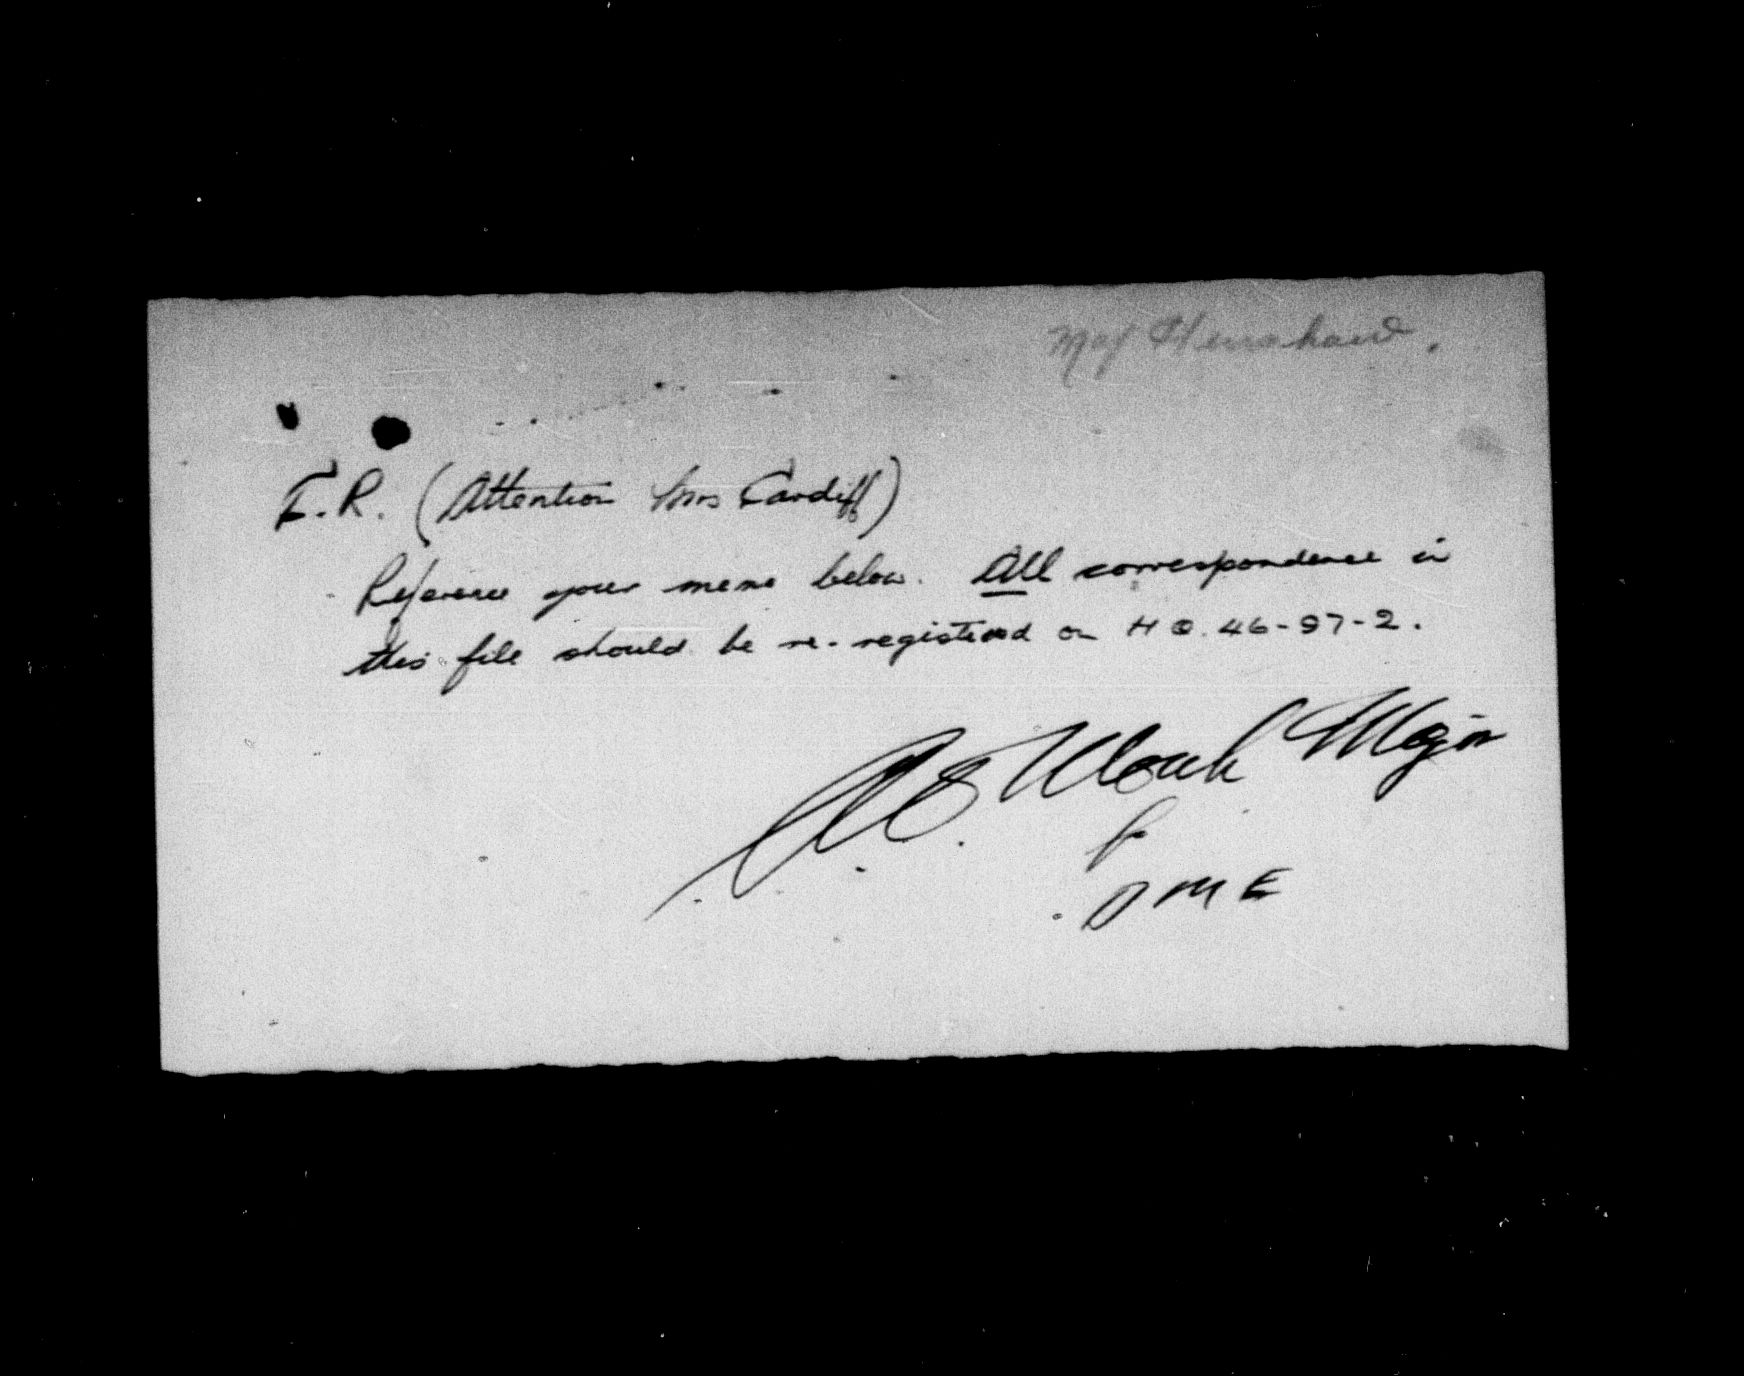 Maj Henshaw.
C.R. (Attention Mrs Cardiff)
Reference your memo below. All correspondence in
this file should be re-registered on HQ. 46-97-2.
Major
for
DME